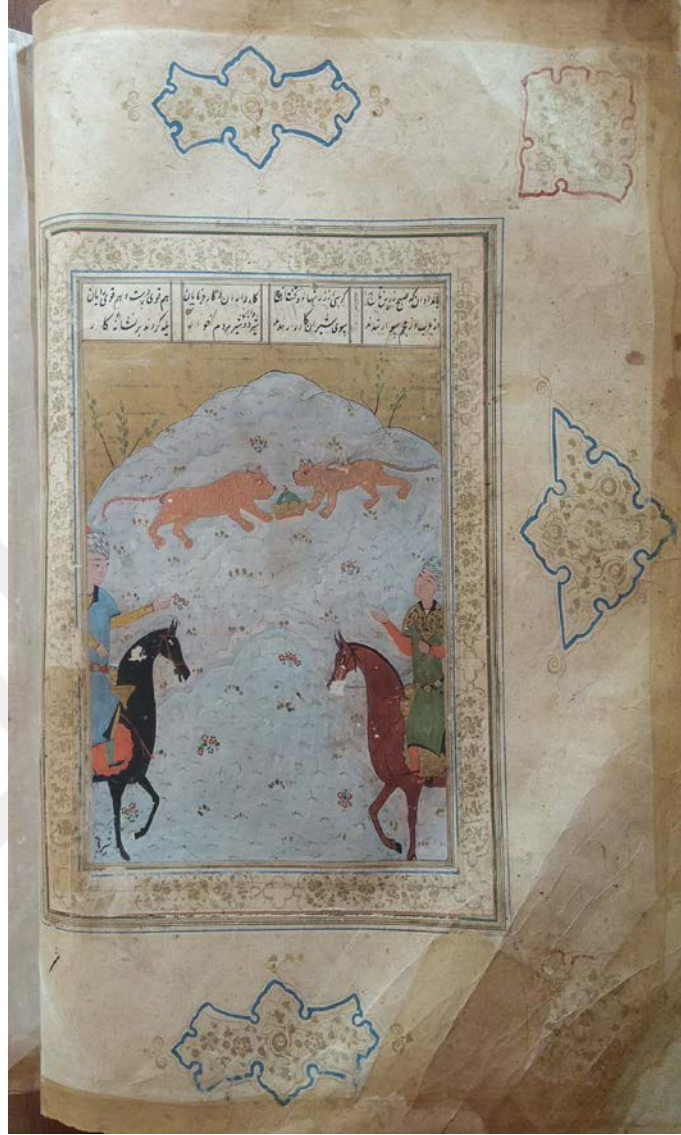 بامدادان که صبح زرین تاج کرسی از زر نهاد و تخت از عاج کاردانان و کارفرمایان هم قوی دست و هم قوی رایان
از عرب وز عجم سوار شدند سوی شیران کارزار دو شیر مردم خوار یله کردند بر نشانه کار